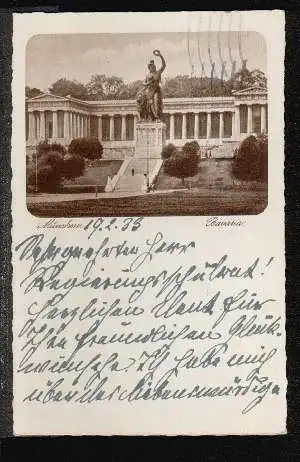 München 19.2.33 Bavaria.
Sehr geehrter Herr
Regierungsschulrat!
Herzlichen Dank für
Ihre freundlichen Glück-
wünsche. Ich habe mich
über das liebenswürdige